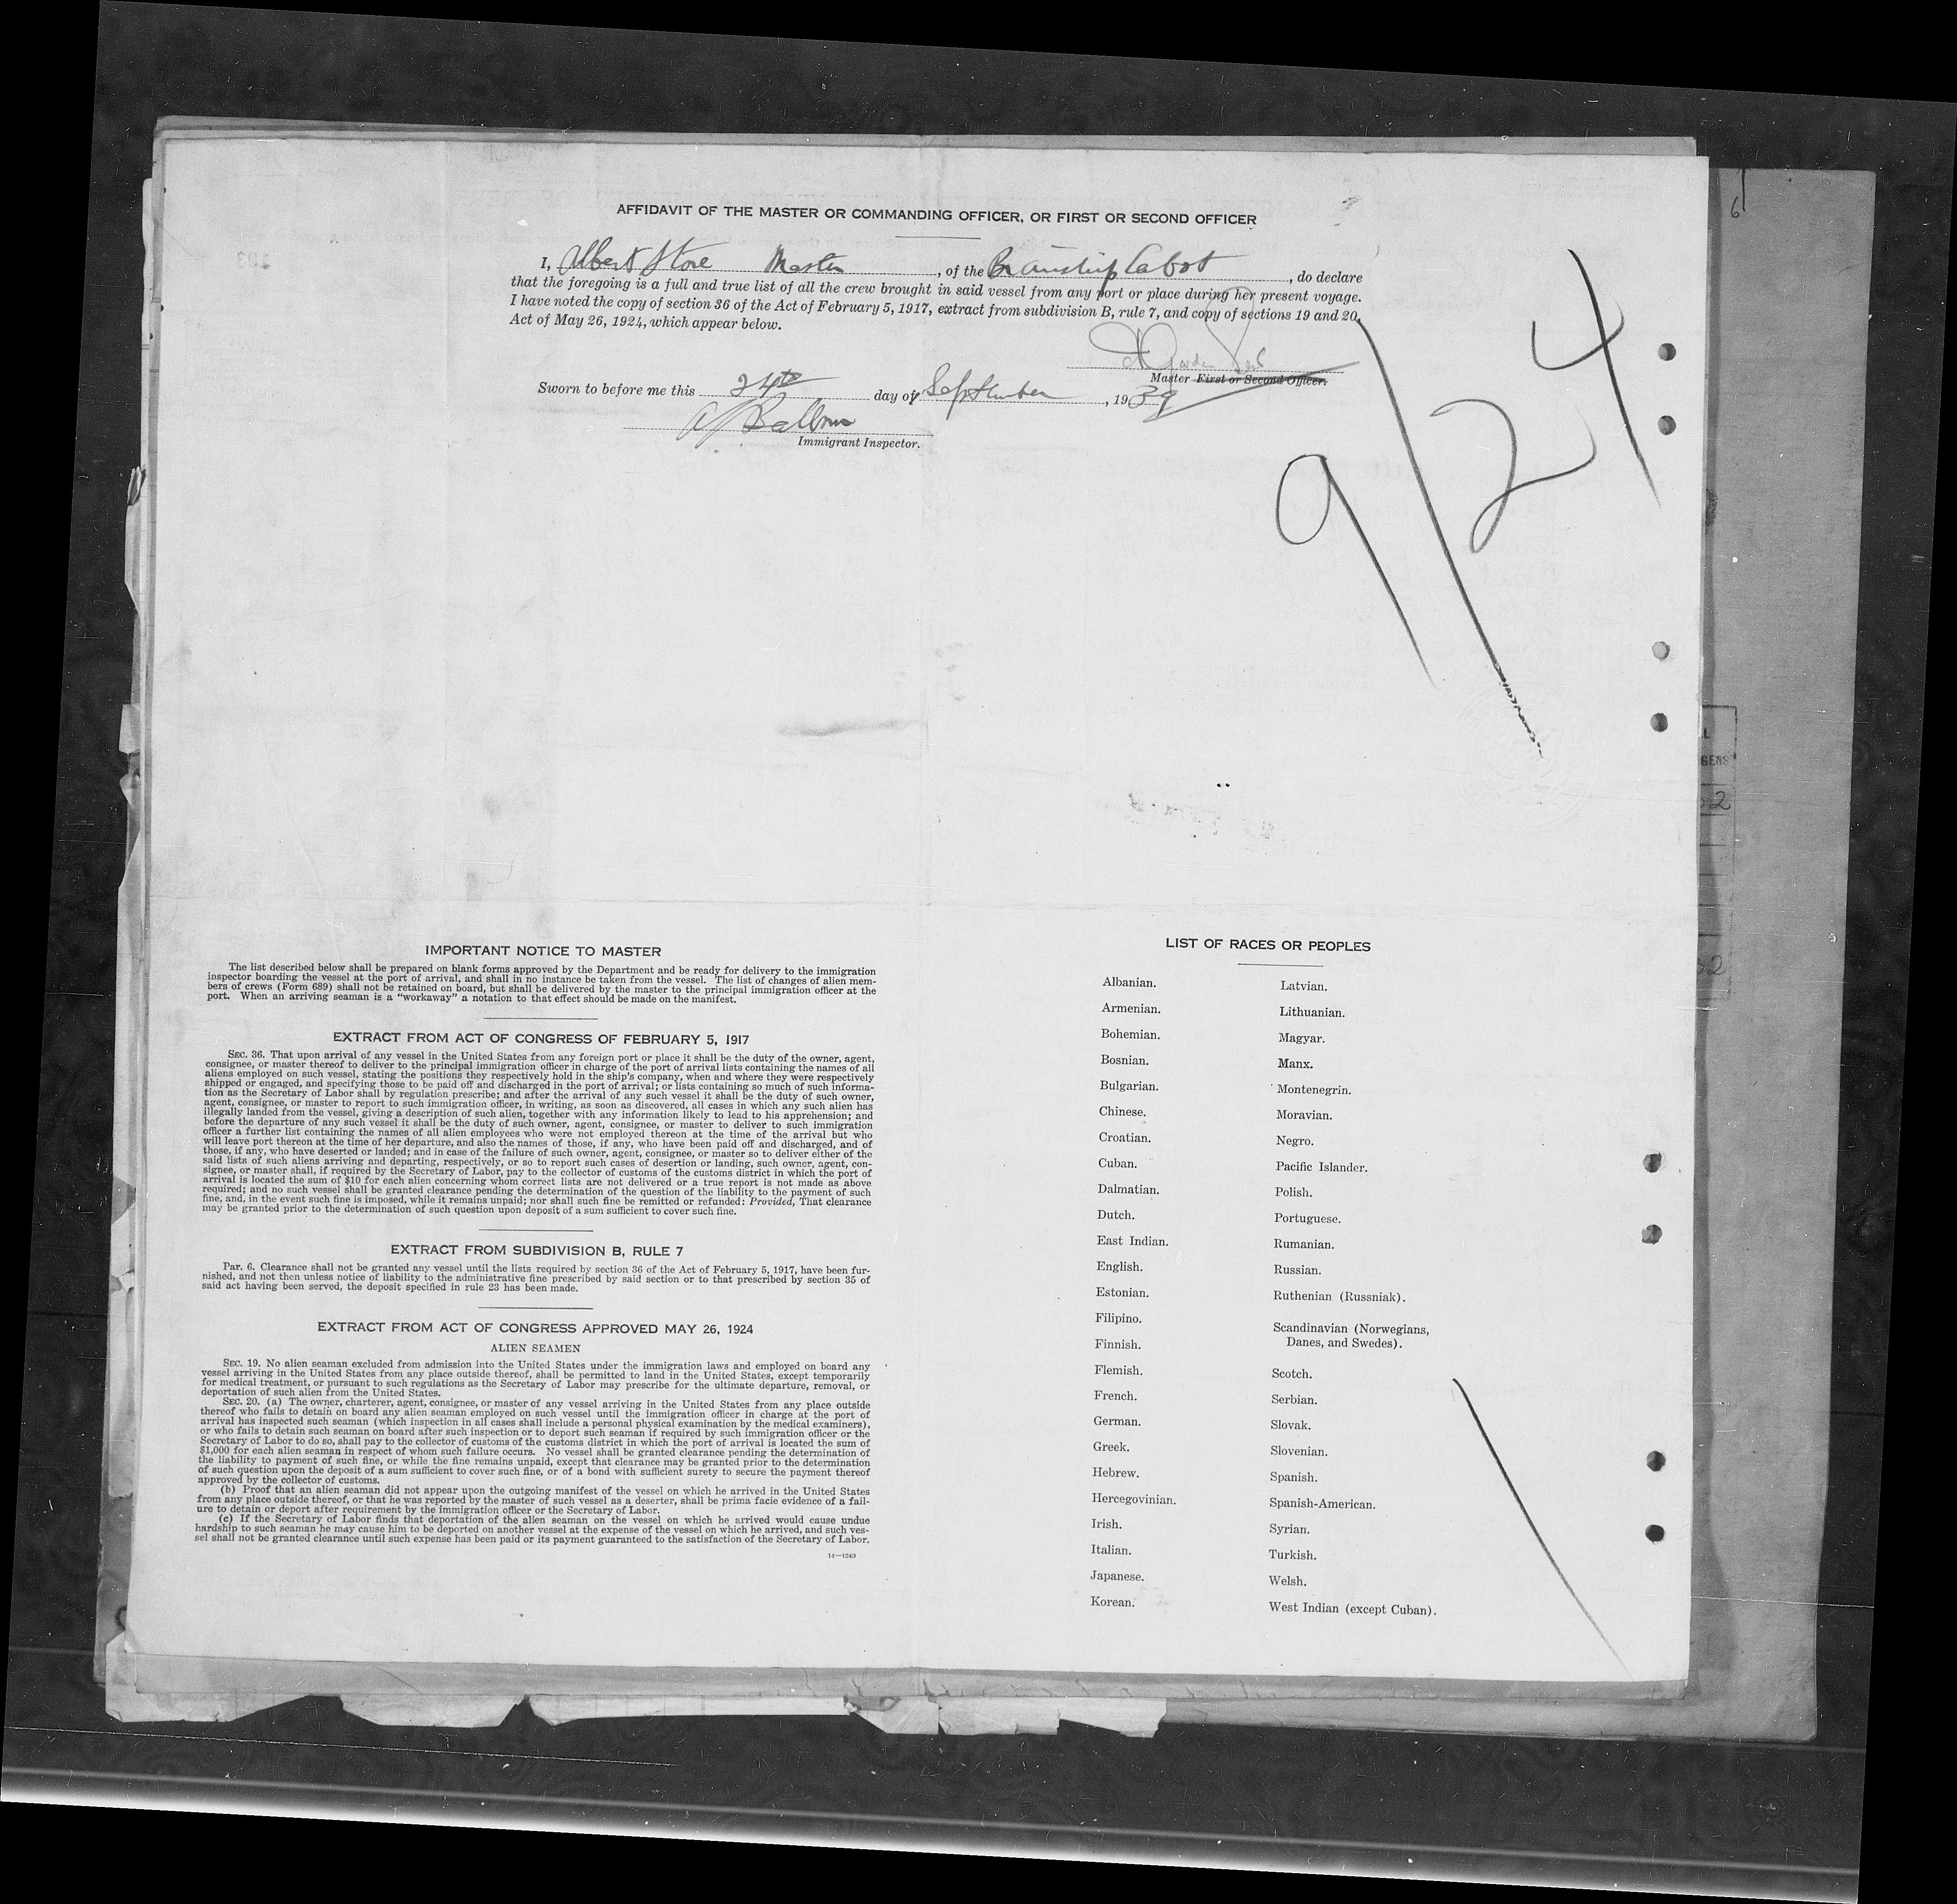 AFFIDAVIT OF THE MASTER OR COMMANDING OFFICER, OR FIRST OR SECOND OFFICER
I, Albert Stone Master, of the Br Cabot, do declare
that the foregoing is a full and true list of all the crew brought in said vessel from any port or place during her present voyage.
I have noted the copy of section 36 of the Act of February 5, 1917, extract from subdivision B, rule 7, and copy of sections 19 and 20,
Act of May 26, 1924, which appear below.
Master First or Second Officer.
Sworn to before me this 24th day of September, 1939
Immigrant Inspector.
9/24
IMPORTANT NOTICE TO MASTER
The list described below shall be prepared on blank forms approved by the Department and be ready for delivery to the immigration
inspector boarding the vessel at the port of arrival, and shall in no instance be taken from the vessel. The list of changes of alien mem-
bers of crews (Form 689) shall not be retained on board, but shall be delivered by the master to the principal immigration officer at the
port. When an arriving seaman is a "workaway" a notation to that effect should be made on the manifest.
EXTRACT FROM ACT OF CONGRESS OF FEBRUARY 5, 1917
SEC. 36. That upon arrival of any vessel in the United States from any foreign port or place it shall be the duty of the owner, agent,
consignee, or master thereof to deliver to the principal immigration officer in charge of the port of arrival lists containing the names of all
aliens employed on such vessel, stating the positions they respectively hold in the ship's company, when and where they were respectively
shipped or engaged, and specifying those to be paid off and discharged in the port of arrival; or lists containing so much of such informa-
tion as the Secretary of Labor shall by regulation prescribe; and after the arrival of any such vessel it shall be the duty of such owner,
agent, consignee, or master to report to such immigration officer, in writing, as soon as discovered, all cases in which any such alien has
illegally landed from the vessel, giving a description of such alien, together with any information likely to lead to his apprehension; and
before the departure of any such vessel it shall be the duty of such owner, agent, consignee, or master to deliver to such immigration
officer a further list containing the names of all alien employees who were not employed thereon at the time of the arrival but who
will leave port thereon at the time of her departure, and also the names of those, if any, who have been paid off and discharged, and of
those, if any, who have deserted or landed; and in case of the failure of such owner, agent, consignee, or master so to deliver either of the
said lists of such aliens arriving and departing, respectively, or so to report such cases of desertion or landing, such owner, agent, con-
signee, or master shall, if required by the Secretary of Labor, pay to the collector of customs of the customs district in which the port of
arrival is located the sum of $10 for each alien concerning whom correct lists are not delivered or a true report is not made as above
required; and no such vessel shall be granted clearance pending the determination of the question of the liability to the payment of such
fine, and, in the event such fine is imposed, while it remains unpaid; nor shall such fine be remitted or refunded: Provided, That clearance
may be granted prior to the determination of such question upon deposit of a sum sufficient to cover such fine.
EXTRACT FROM SUBDIVISION B, RULE 7
Par. 6. Clearance shall not be granted any vessel until the lists required by section 36 of the Act of February 5, 1917, have been fur-
nished, and not then unless notice of liability to the administrative fine prescribed by said section or to that prescribed by section 35 of
said act having been served, the deposit specified in rule 23 has been made.
EXTRACT FROM ACT OF CONGRESS APPROVED MAY 26, 1924
ALIEN SEAMEN
SEC. 19. No alien seaman excluded from admission into the United States under the immigration laws and employed on board any
vessel arriving in the United States from any place outside thereof, shall be permitted to land in the United States, except temporarily
for medical treatment, or pursuant to such regulations as the Secretary of Labor may prescribe for the ultimate departure, removal, or
deportation of such alien from the United States.
SEC. 20. (a) The owner, charterer, agent, consignee, or master of any vessel arriving in the United States from any place outside
thereof who fails to detain on board any alien seaman employed on such vessel until the immigration officer in charge at the port of
arrival has inspected such seaman (which inspection in all cases shall include a personal physical examination by the medical examiners),
or who fails to detain such seaman on board after such inspection or to deport such seaman if required by such immigration officer or the
Secretary of Labor to do so, shall pay to the collector of customs of the customs district in which the port of arrival is located the sum of
$1,000 for each alien seaman in respect of whom such failure occurs. No vessel shall be granted clearance pending the determination of
the liability to payment of such fine, or while the fine remains unpaid, except that clearance may be granted prior to the determination
of such question upon the deposit of a sum sufficient to cover such fine, or of a bond with sufficient surety to secure the payment thereof
approved by the collector of customs.
(b) Proof that an alien seaman did not appear upon the outgoing manifest of the vessel on which he arrived in the United States
from any place outside thereof, or that he was reported by the master of such vessel as a deserter, shall be prima facie evidence of a fail-
ure to detain or deport after requirement by the immigration officer or the Secretary of Labor.
(c) If the Secretary of Labor finds that deportation of the alien seaman on the vessel on which he arrived would cause undue
hardship to such seaman he may cause him to be deported on another vessel at the expense of the vessel on which he arrived, and such ves-
sel shall not be granted clearance until such expense has been paid or its payment guaranteed to the satisfaction of the Secretary of Labor.
14—1240
LIST OF RACES OR PEOPLES
Albanian.
Armenian.
Bohemian.
Bosnian.
Bulgarian.
Chinese.
Croatian.
Cuban.
Dalmatian.
Dutch.
East Indian.
English.
Estonian.
Filipino.
Finnish.
Flemish.
French.
German.
Greek.
Hebrew.
Hercegovinian.
Irish.
Italian.
Japanese.
Korean.
Latvian.
Lithuanian.
Magyar.
Manx.
Montenegrin.
Moravian.
Negro.
Pacific Islander.
Polish.
Portuguese.
Rumanian.
Russian.
Ruthenian (Russniak).
Scandinavian (Norwegians,
Danes, and Swedes).
Scotch.
Serbian.
Slovak.
Slovenian.
Spanish.
Spanish-American.
Syrian.
Turkish.
Welsh.
West Indian (except Cuban).